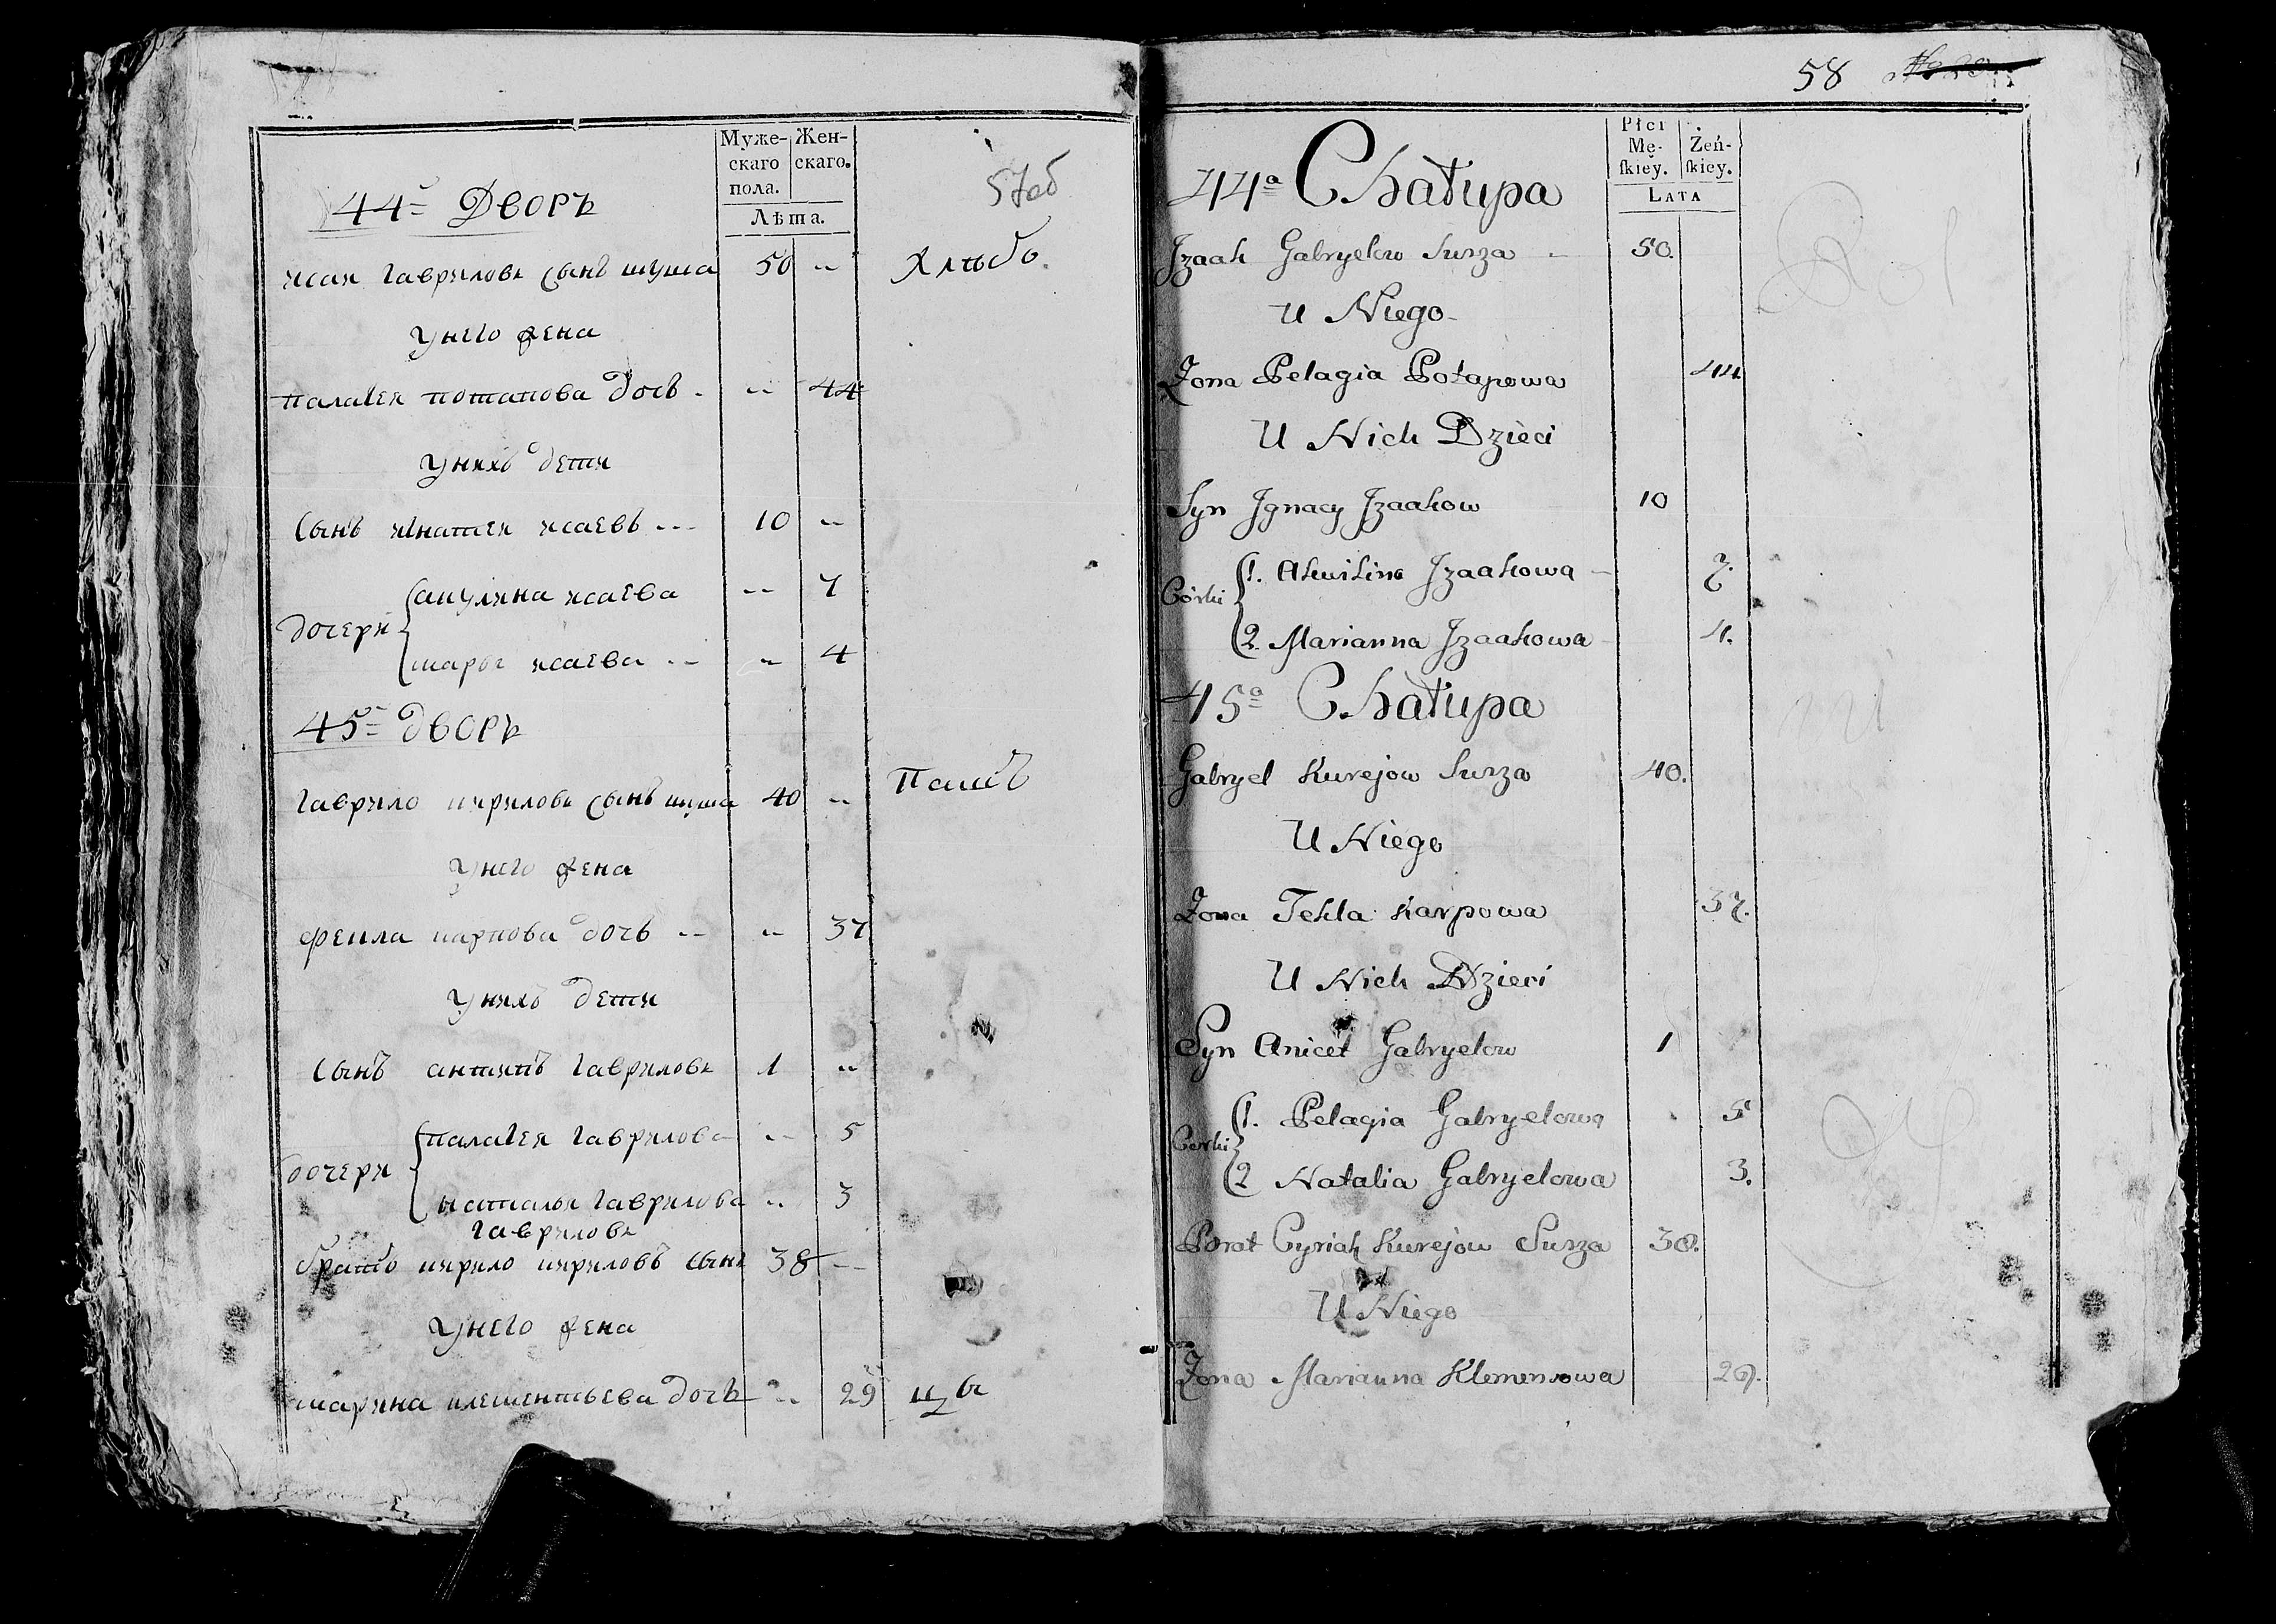 Муже-
скаго
пола.
Жен-
скаго.
Лѣта.
57об
44й Дворъ
исак гавриловъ сынъ шуша 50 --
Хлѣб.
Унего жена
палагея потапова дочь - -- 44
Унихъ дети
Сынъ игнатей исаевъ --- 10 --
дочери
акулина исаева -- 7
марья исаева -- -- 4
45й дворъ
гаврило кириловъ сынъ шуша 40 --
Паш
Унего жена
фекла карпова дочь -- -- 37
Унихъ дети
Сынъ антипъ гавриловъ 1 --
дочери
палагея гаврилова -- 5
наталья гаврилова -- 3
гавриловъ
братъ кирило кириловъ сынъ 38 --
Унего жена
марина клементьева дочь -- 29
58
Płci
Mę-
skiey.
Żeń-
skiey.
LATA
44a Chałupa
Jzaak Gabryelow Surza - 50.
U Niego -
Żona Pelagia Potapowa 44
U Nich Dzieci
Syn Jgnacy Jzaakow 10
Córki
1. Akwilina Jzaakowa - 7.
2. Marianna Jzaakowa - 4.
45a Chałupa
Gabryel Kurejow Surza 40.
U Niego
Żona Tekla Karpowa 37.
U Nich Dzieci
Syn Anicet Gabryelow 1
Corki
1. Pelagia Gabryelowa 5
2 Natalia Gabryelowa 3.
Brat Cyriak Kurejow Surza 38.
U Niego
Żona Marianna Klemensowa 29.